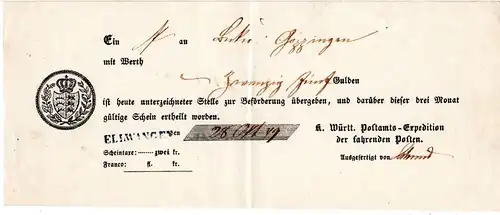 Ein an Göppingen
mit Werth
Zwanzig Fünf Gulden
ist heute unterzeichneter Stelle zur Beförderung übergeben, und darüber dieser drei Monat
gültige Schein ertheilt worden.
ELLWANGEN den 28 Okt 49
K. Württ. Postamts-Expedition
der fahrenden Posten.
Scheintaxe: zwei kr.
Franco: fl. kr.
Ausgefertigt von